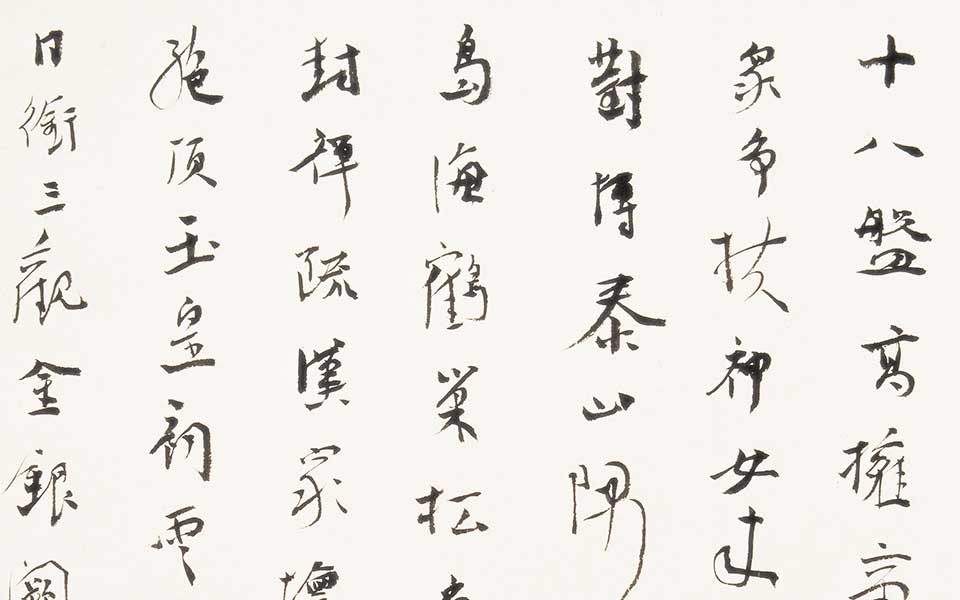 十八盤高擁帝
眾爭扶神女
對博泰山隅
島海鶴巢松
封禪疏漢家壇
絕頂玉皇祠雲
日銜三觀金銀闕